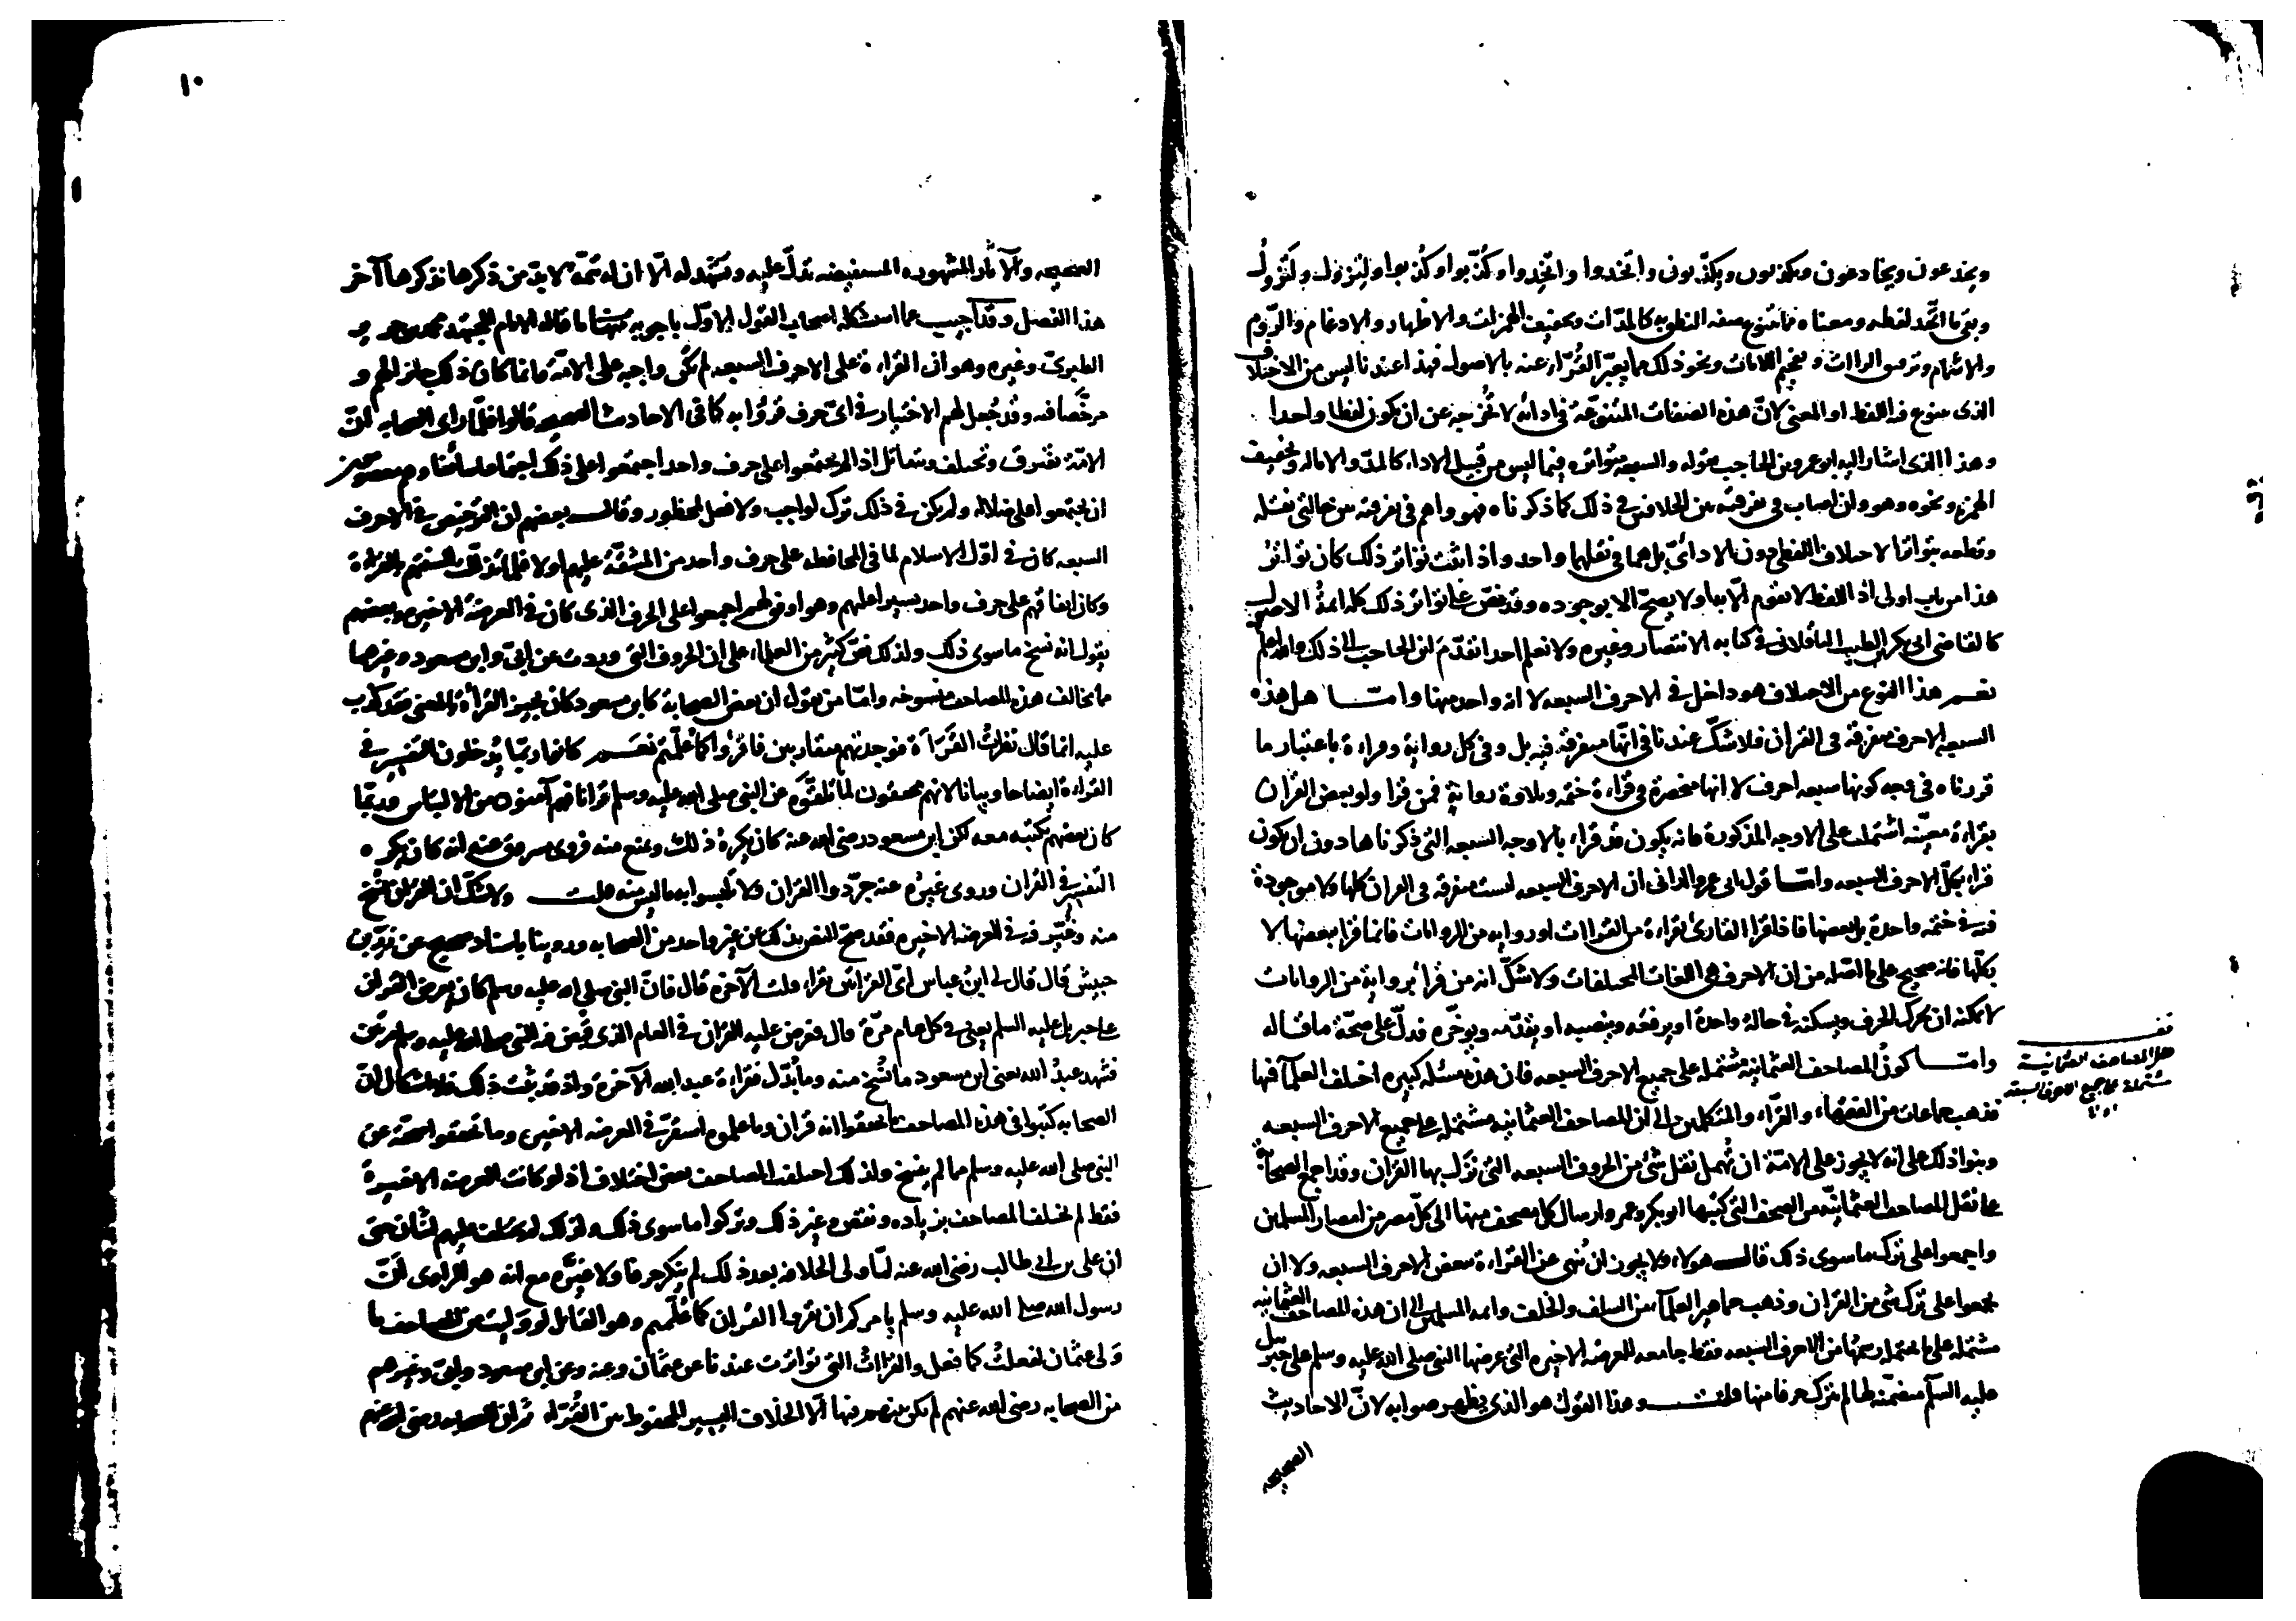 ويخدعون ويخادعون ويكذبون ويكذّبون واتخذوا واتّخِذوا وكُذّبوا وكُذِبوا ولِتزول ولَتزولُ
وبقي ما اتّحد لفظه ومعناه مما يتنوع صفه النطق به كالمدّات وتخفيف الهمزات والاظهار والادغام والرّوم
والاشمام وترقيق الراات وتفخيم اللامات ونحو ذلك مما يعبّر القُرّاء عنه بالاصول فهذا عندنا ليس من الاختلاف
الذى يتنوع فيه اللفظ او المعنى لانّ هذه الصفات المتنوّعة في ادائه لا تُخرجه عن ان يكون لفظا واحدا
وهذا الذى اشار اليه ابو عمرو بن الحاجب بقوله والسبعه متواتره فيما ليس من قبيل الاداء كالمدّ والاماله وتخفيف
الهمز ونحوه وهو وان اصاب في تفرقته بين الخلافين في ذلك كما ذكرناه فهو واهم في تفرقته بين حالتي نقله
وقطعه بتواتر الاختلاف اللفظي دون الادائيّ بل هما في نقلهما واحد واذا ثبت تواتر ذلك كان تواترُ
هذا من باب اولى اذ اللفظ لا يقوم الّا به او لا يصحّ الا بوجوده وقد نصّ على تواتر ذلك كله ائمةُ الاصول
كالقاضي ابى بكر بن الطيب الباقلاني في كتابه الانتصار وغيره ولا نعلم احدا تقدّمَ ابن الحاجب الى ذلك والله اعلم
نعــم هذا النوع من الاختلاف هو داخل في الاحرف السبعه لا انه واحد منها وامّـا هل هذه
السبعه الاحرف متفرقة في القران فلا شكّ عندنا في انّها متفرقة فيه بل وفي كل رواية وقراءة باعتبار ما
قررناه في وجه كونها سبعه احرف لا انها منحصرة في قراءة ختمه وتلاوة رواية فمن قرا ولو بعض القران
بقراءة معيّنه اشتملت على الاوجه المذكورة فانه يكون قد قراء بالاوجه السبعه التي ذكرناها دون ان يكون
قراء بكلّ الاحرف السبعه وامّا قول ابى عمرو الدانى ان الاحرف السبعه ليست متفرقه في القران كلها ولا موجودة
فيه في ختمه واحدة بل بعضها فاذا قرا القارئ بقراءة من القراات او روايه من الروايات فانما قرا ببعضها لا
بكلّها فانه صحيح على ما اصّله من ان الاحرف هي اللغات المختلفات ولا شكّ انه من قرأ برواية من الروايات
لا يمكنه ان يحرك الحرف ويسكنه في حالةٍ واحدة او يرفعَه وينصبه او يقدّمه ويؤخّره فدلّ على صحّة ما قاله
وامّـا كونُ المصاحف العثمانية مشتمله على جميع الاحرف السبعه فان هذه مسئله كبيره اختلف العلمآ فيها
فذهب جماعات من الفقهاء والقرّاء والمتكلمين الى ان المصاحف العثمانيه مشتمله على جميع الاحرف السبعه
وبنوا ذلك على انه لا يجوز على الامّة ان تُهمل نقل شئ من الحروف السبعه التي نزل بها القران وقد اجمع الصحابةُ
على نقل المصاحف العثمانيّه من الصحف التي كتبها ابو بكر وعمر وارسال كل مصحف منها الى كلّ مصر من امصار المسلمين
واجمعوا على ترك ما سوى ذلك قالــ هولاء ولا يجوز ان يُنهى عن القراءة ببعض الاحرف السبعه ولا ان
يجمعوا على ترك شئ من القران وذهب جماهير العلمآ من السلف والخلف وائمه المسلمين الى ان هذه المصاحف العثمانيه
مشتمله على ما يحتمله رسمُها من الاحرف السبعه فقط جامعه للعرضه الاخيره التي عرضها النبي صلى الله عليه وسلم على جبريل
عليه السّلم متضمّنه لها لم تترك حرفا منها قلتـــ وهذا القول هو الذى يظهر صوابه لانّ الاحاديث
الصحيحه
قف
هل المصاحف العثمانية
مشتملة على جميع الاحرف السبعة
١٠
الصحيحه والآثار المشهوره المستفيضه تدلّ عليه وتشهد له الّا ان له تتمّة لا بدّ من ذكرها نذكرها آخر
هذا الفصل وقد أجيب عما استشكله اصحاب القول الاوّل باجوبه منها ما قاله الامام المجتهد محمد بن جرير
الطبرىّ وغيره وهو ان القراءة على الاحرف السبعه لم تكُن واجبه على الامّة وانما كان ذلك جائزا لهم و
مرخّصا فيه وقد جُعل لهم الاختيار في اىّ حرف قرؤا به كما فى الاحاديث الصحيحه قالوا فلمّا راى الصحابه انّ
الامّة تفترق وتختلف وتتقاتل اذا لم يجتمعوا على حرف واحد اجتمعوا على ذلك اجتماعا سائغا وهم معصومون
ان يجتمعوا على ضلاله ولم يكن في ذلك ترك لواجب ولا فعل لمحظور وقالــ بعضهم ان الترخيص في الاحرف
السبعه كان في اوّل الاسلام لما في المحافظه على حرف واحد من المشقّة عليهم اولا فلما تذلّلت السنتهم بالقراءة
وكان اتفاقهم على حرف واحد يسيرا عليهم وهو اوفق لهم اجمعوا على الحرف الذى كان في العرضة الاخيره وبعضهم
يقول انه نسخ ما سوى ذلك ولذلك نصّ كثير من العلماء على ان الحروف التي وردت عن ابىّ وابن مسعود وغيرهما
مما يخالف هذه المصاحف منسوخه وامّا من يقول ان بعض الصحابة كابن مسعود كان يجيز القراءة بالمعنى فقد كذب
عليه انما قال نظرتُ القُرَآة فوجدتهم متقاربين فاقرؤا كما عُلّمتم نعــم كانوا ربّما يُدخلون التفسير في
القراءة ايضاحا وبيانا لانهم محققون لما تلقّوه عن النبي صلى الله عليه وسلم قرانا فهم آمنون من الالتباس وربّما
كان بعضهم يكتبه معه لكن ابن مسعود رضى الله عنه كان يكرهُ ذلك ويمنع منه فروى مسروق عنه انه كان يكره
التفسير في القران وروى غيرُه عنه جرّدوا القران ولا تلبسوا به ما ليس منه قلتــ ولا شكّ انّ القران نُسخ
منه وغُيّر فيه في العرضه الاخيره فقد صحّ النصّ بذلك عن غير واحد من الصحابه وروينا باسناد صحيح عن زرّ بن
حبيش قال قال لى ابنُ عباس اىّ القراتين تقراء قلت الآخرة قال فانّ النبي صلى الله عليه وسلم كان يعرض القران
على جبريل عليه السلم يعنى في كل عام مرّة قال فعرض عليه القران في العام الذى قُبض فيه النبي صلى الله عليه وسلم مرّتين
فشهد عبدُ الله يعنى ابن مسعود ما نُسخ منه وما بُدّل فقراءة عبد الله الآخرة واذ قد ثبت ذلك فلا اشكال انّ
الصحابه كتبوا في هذه المصاحف ما تحققوا انه قران وما علموه استقرّ في العرضه الاخيره وما تحققوا صحّته عن
النبي صلى الله عليه وسلم مما لم ينسخ ولذلك اختلفت المصاحف بعض اختلاف اذ لو كانت العرضه الاخيرة
فقط لم تختلف المصاحف بزياده ونقص وغير ذلك وتركوا ما سوى ذلك ولذلك لم يختلف عليهم اثنان حتى
ان على بن ابى طالب رضى الله عنه لمّا ولى الخلافه بعد ذلك لم ينكر حرفا ولا غيّره مع انه هو الراوى انّ
رسول الله صلى الله عليه وسلم يامركم ان تقروا القران كما عُلّمتم وهو القائل لو وَليت من المصاحف ما
وَلى عثمان لفعلتُ كما فعل والقراآتُ التي تواترت عندنا عن عثمان وعنه وعن ابن مسعود وابىّ وغيرهم
من الصحابه رضى الله عنهم لم يكن بينهم فيها الّا الخلاف اليسير المحفوظ بين القُرّاء ثم ان الصحابه رضى الله عنهم